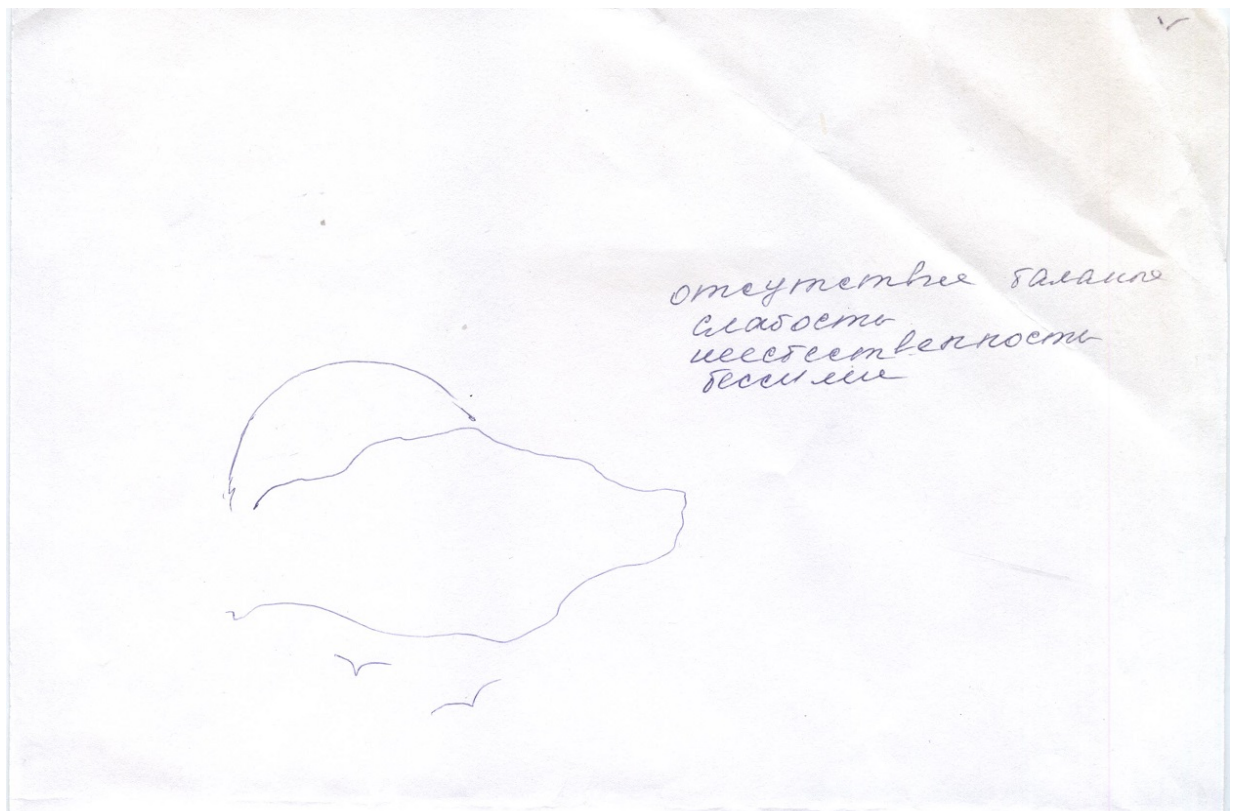 отсутствие баланса
слабость
неестественность
бессилие